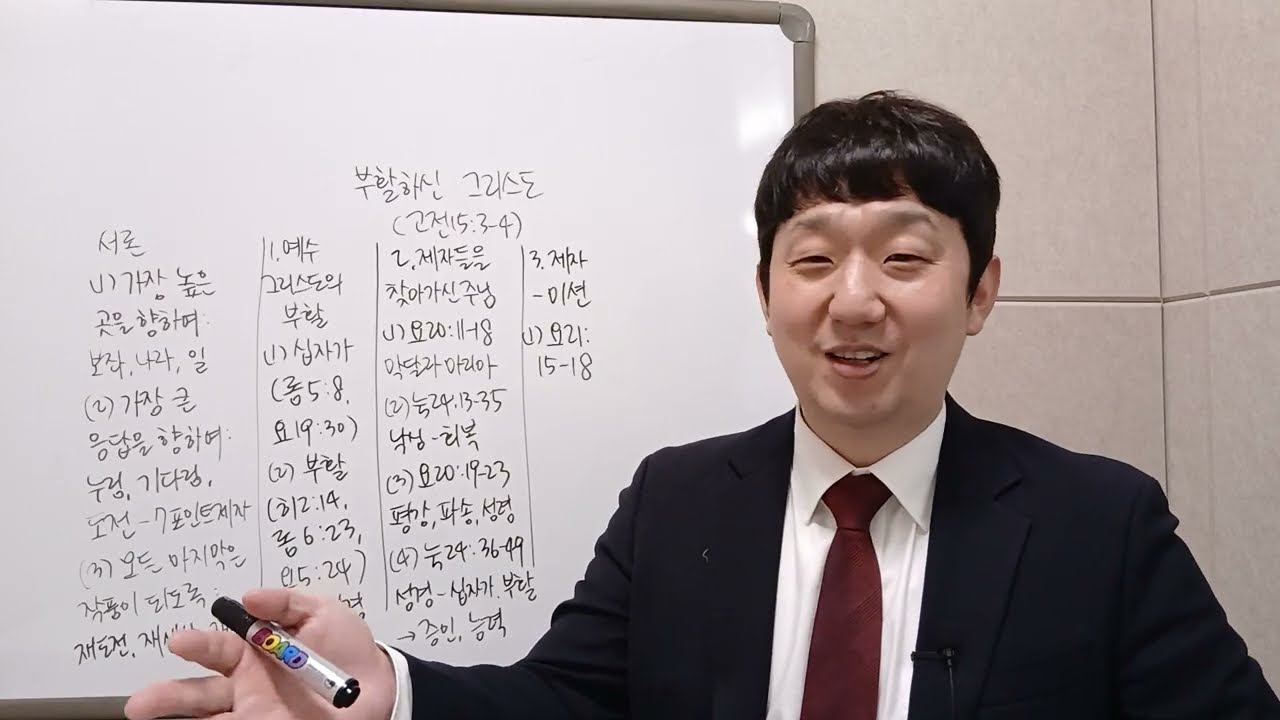 부활하신 그리스도
(고전15:3-4)
서론
(1) 가장 높은
곳을 향하여:
보좌, 나라, 일
(2) 가장 큰
응답을 향하여:
누림, 기다림,
도전-7포인트제자
(3) 모든 마지막은
작품이 되도록:
재도전,
1. 예수
그리스도의
부활
(1) 십자가
(롬5:8,
요19:30)
(2) 부활
(히2:14,
롬6:23,
요5:24)
2. 제자들을
찾아가신 주님
(1) 요20:11-18
막달라 마리아
(2) 눅24:13-35
낙심-회복
(3) 요20:19-23
평강, 파송, 성령
(4) 눅24:36-49
성경-십자가, 부활
→ 증인, 능력
3. 제자
-미션
(1) 요21:
15-18
BOARD